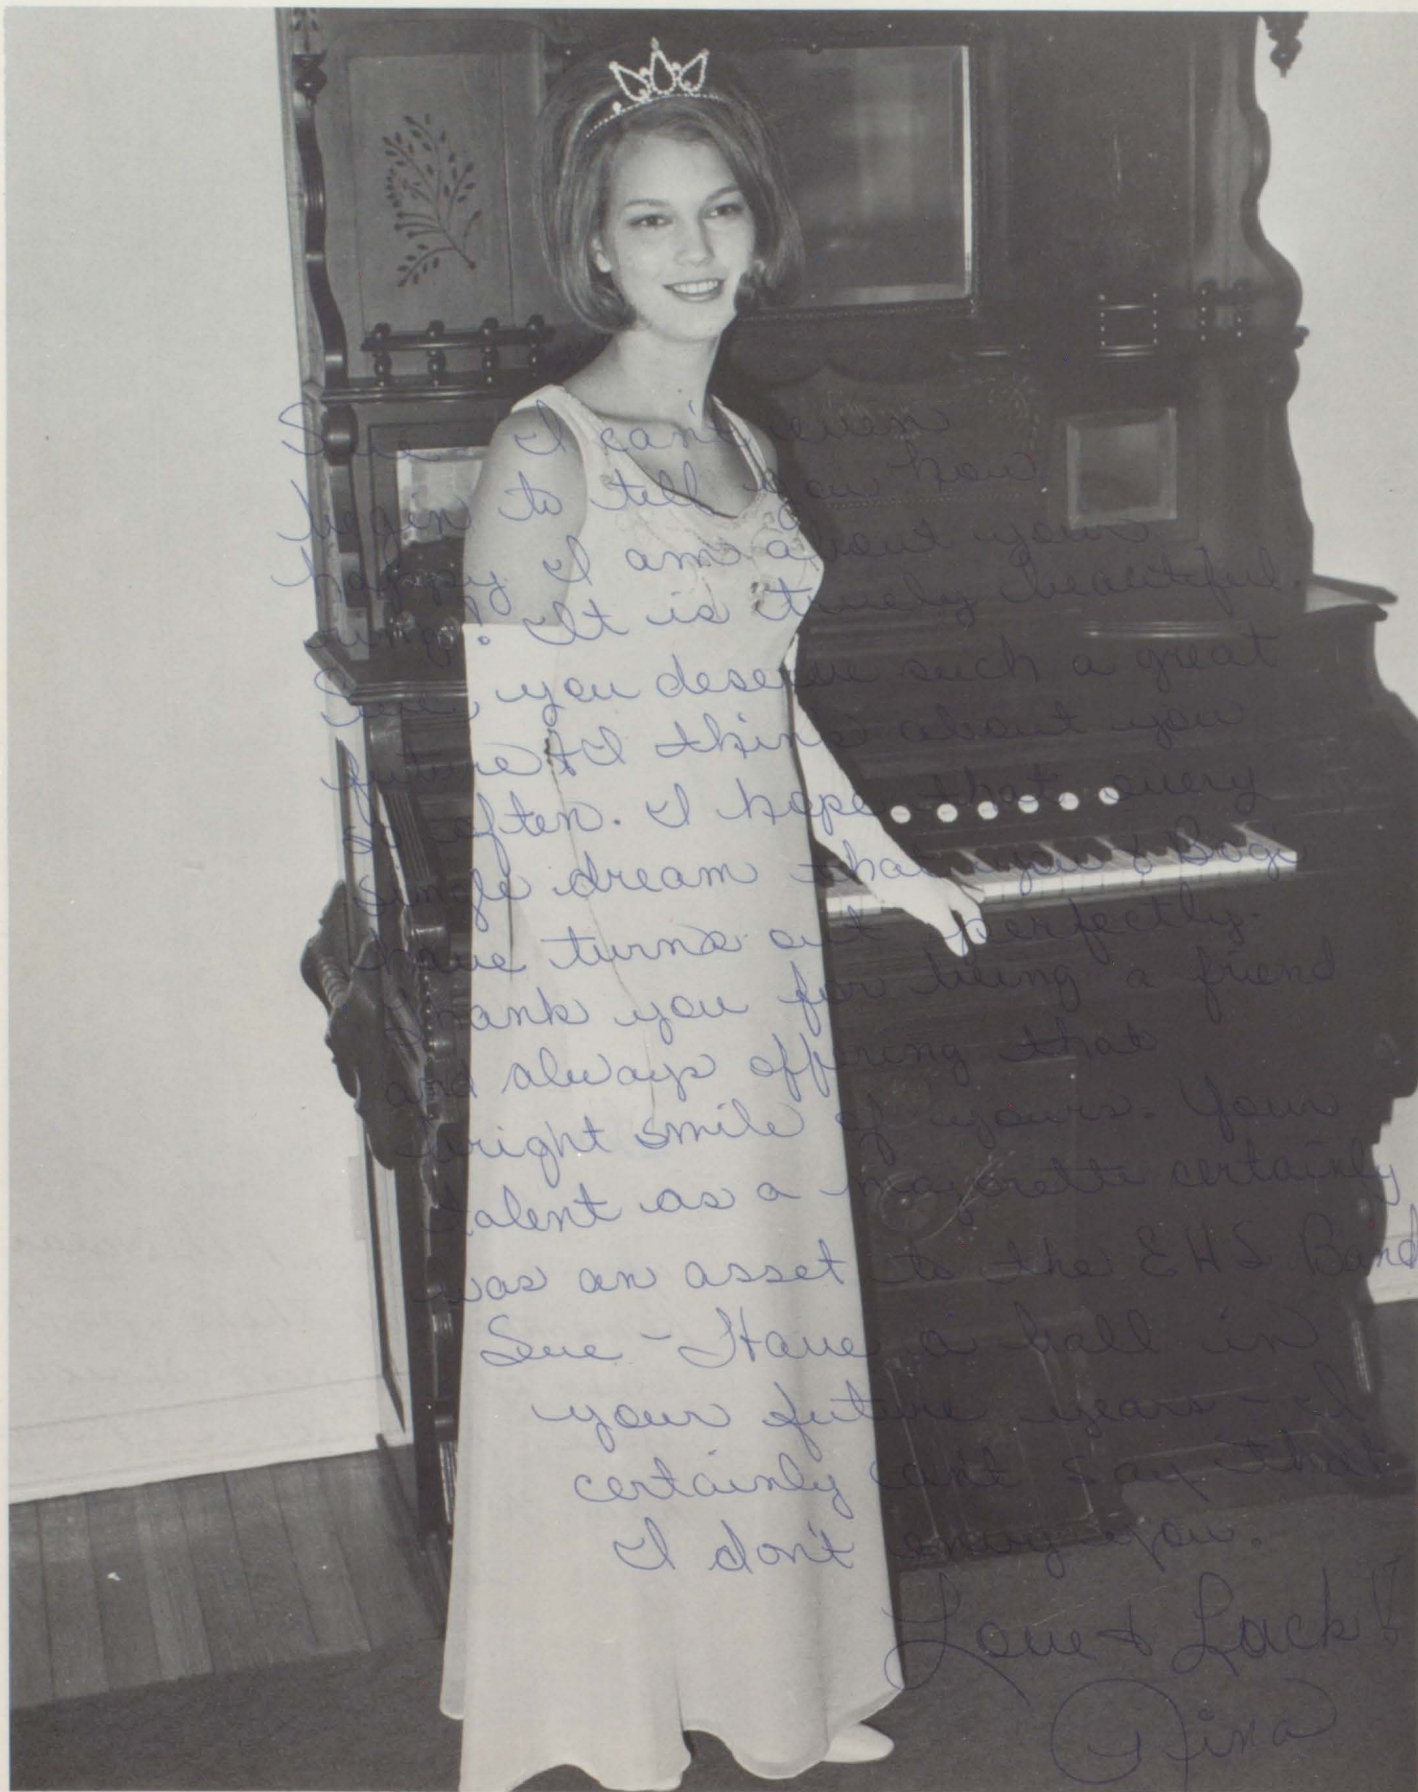 Sue - I can't even
begin to tell you how
happy I am about your
ring! It is truely beautiful.
Sue, you deserve such a great
future & I think about you
so often. I hope that every
single dream that you & Bogi
have turns out perfectly.
Thank you for being a friend
and always offering that
bright smile of yours. Your
talent as a majorette certainly
was an asset to the EHS Band
Sue - Have a ball in
your future years - I
certainly can't say that
I don't envy you.
Love & Luck!
Nina